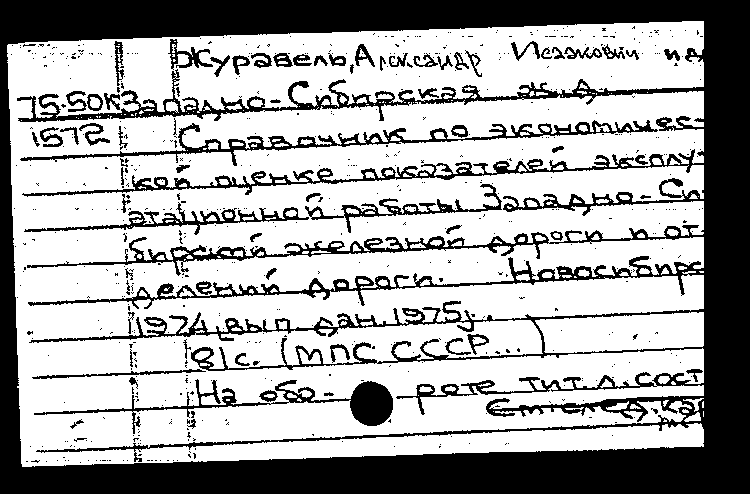 Журавель, Александр Исаакович и д
75-50к Западно-Сибирская ж.д.
1572 Справочник по экономичес-
кой оценке показателей эксплу-
атационной работы Западно-Си-
бирской железной дороги и от-
делений дороги. Новосибирс
1974, вып. дан. 1975.
81с. (МПС СССР...)
На обо- роте тит.л. сост